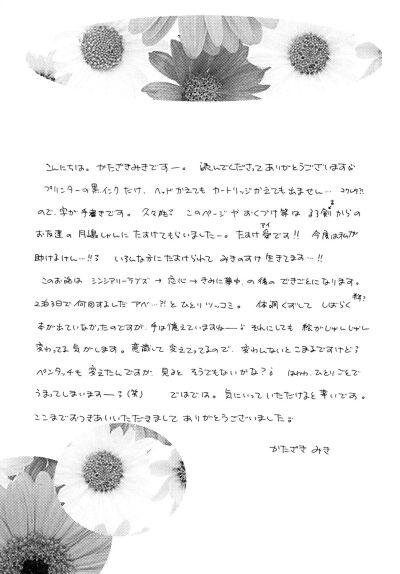 こんにちは。かたざきみきですー。 読んでくださってありがとうございます♪
プリンターの黒インクだけ、ヘッドかえてもカートリッジかえても出ません… コワレタ?!
ので、字が手書きです。久々だ? このページやおくづけ等は るろ剣からの
お友達の月嶋しゃんにたすけてもらいましたー。たすけ愛アイです!! 今度は私が
助けるけん…!!? いろんな方にたすけられて みきのすけ 生きてます…!!
このお話は シンシアリーラブズ → 恋心 → きみに夢中 の後のできごとになります。
2泊3日で何回するんだ アベ…?! とひとりツッコミ。 体調くずして しばらく
本が出ていなかったのですが、手は憶えていますねー♪ それにしても 絵がしゅんしゅん
変わってる気がします。意識して変えてってるので、変わんないとこまるですけど?
ペンタッチも変えたんですが、見ると そうでもないかな?♪ はわわ、ひとりごとで
うまってしまいますー? (笑) ではでは。気にいっていただけると幸いです。
ここまでおつきあいいただきまして ありがとうございました♪
かたざき みき